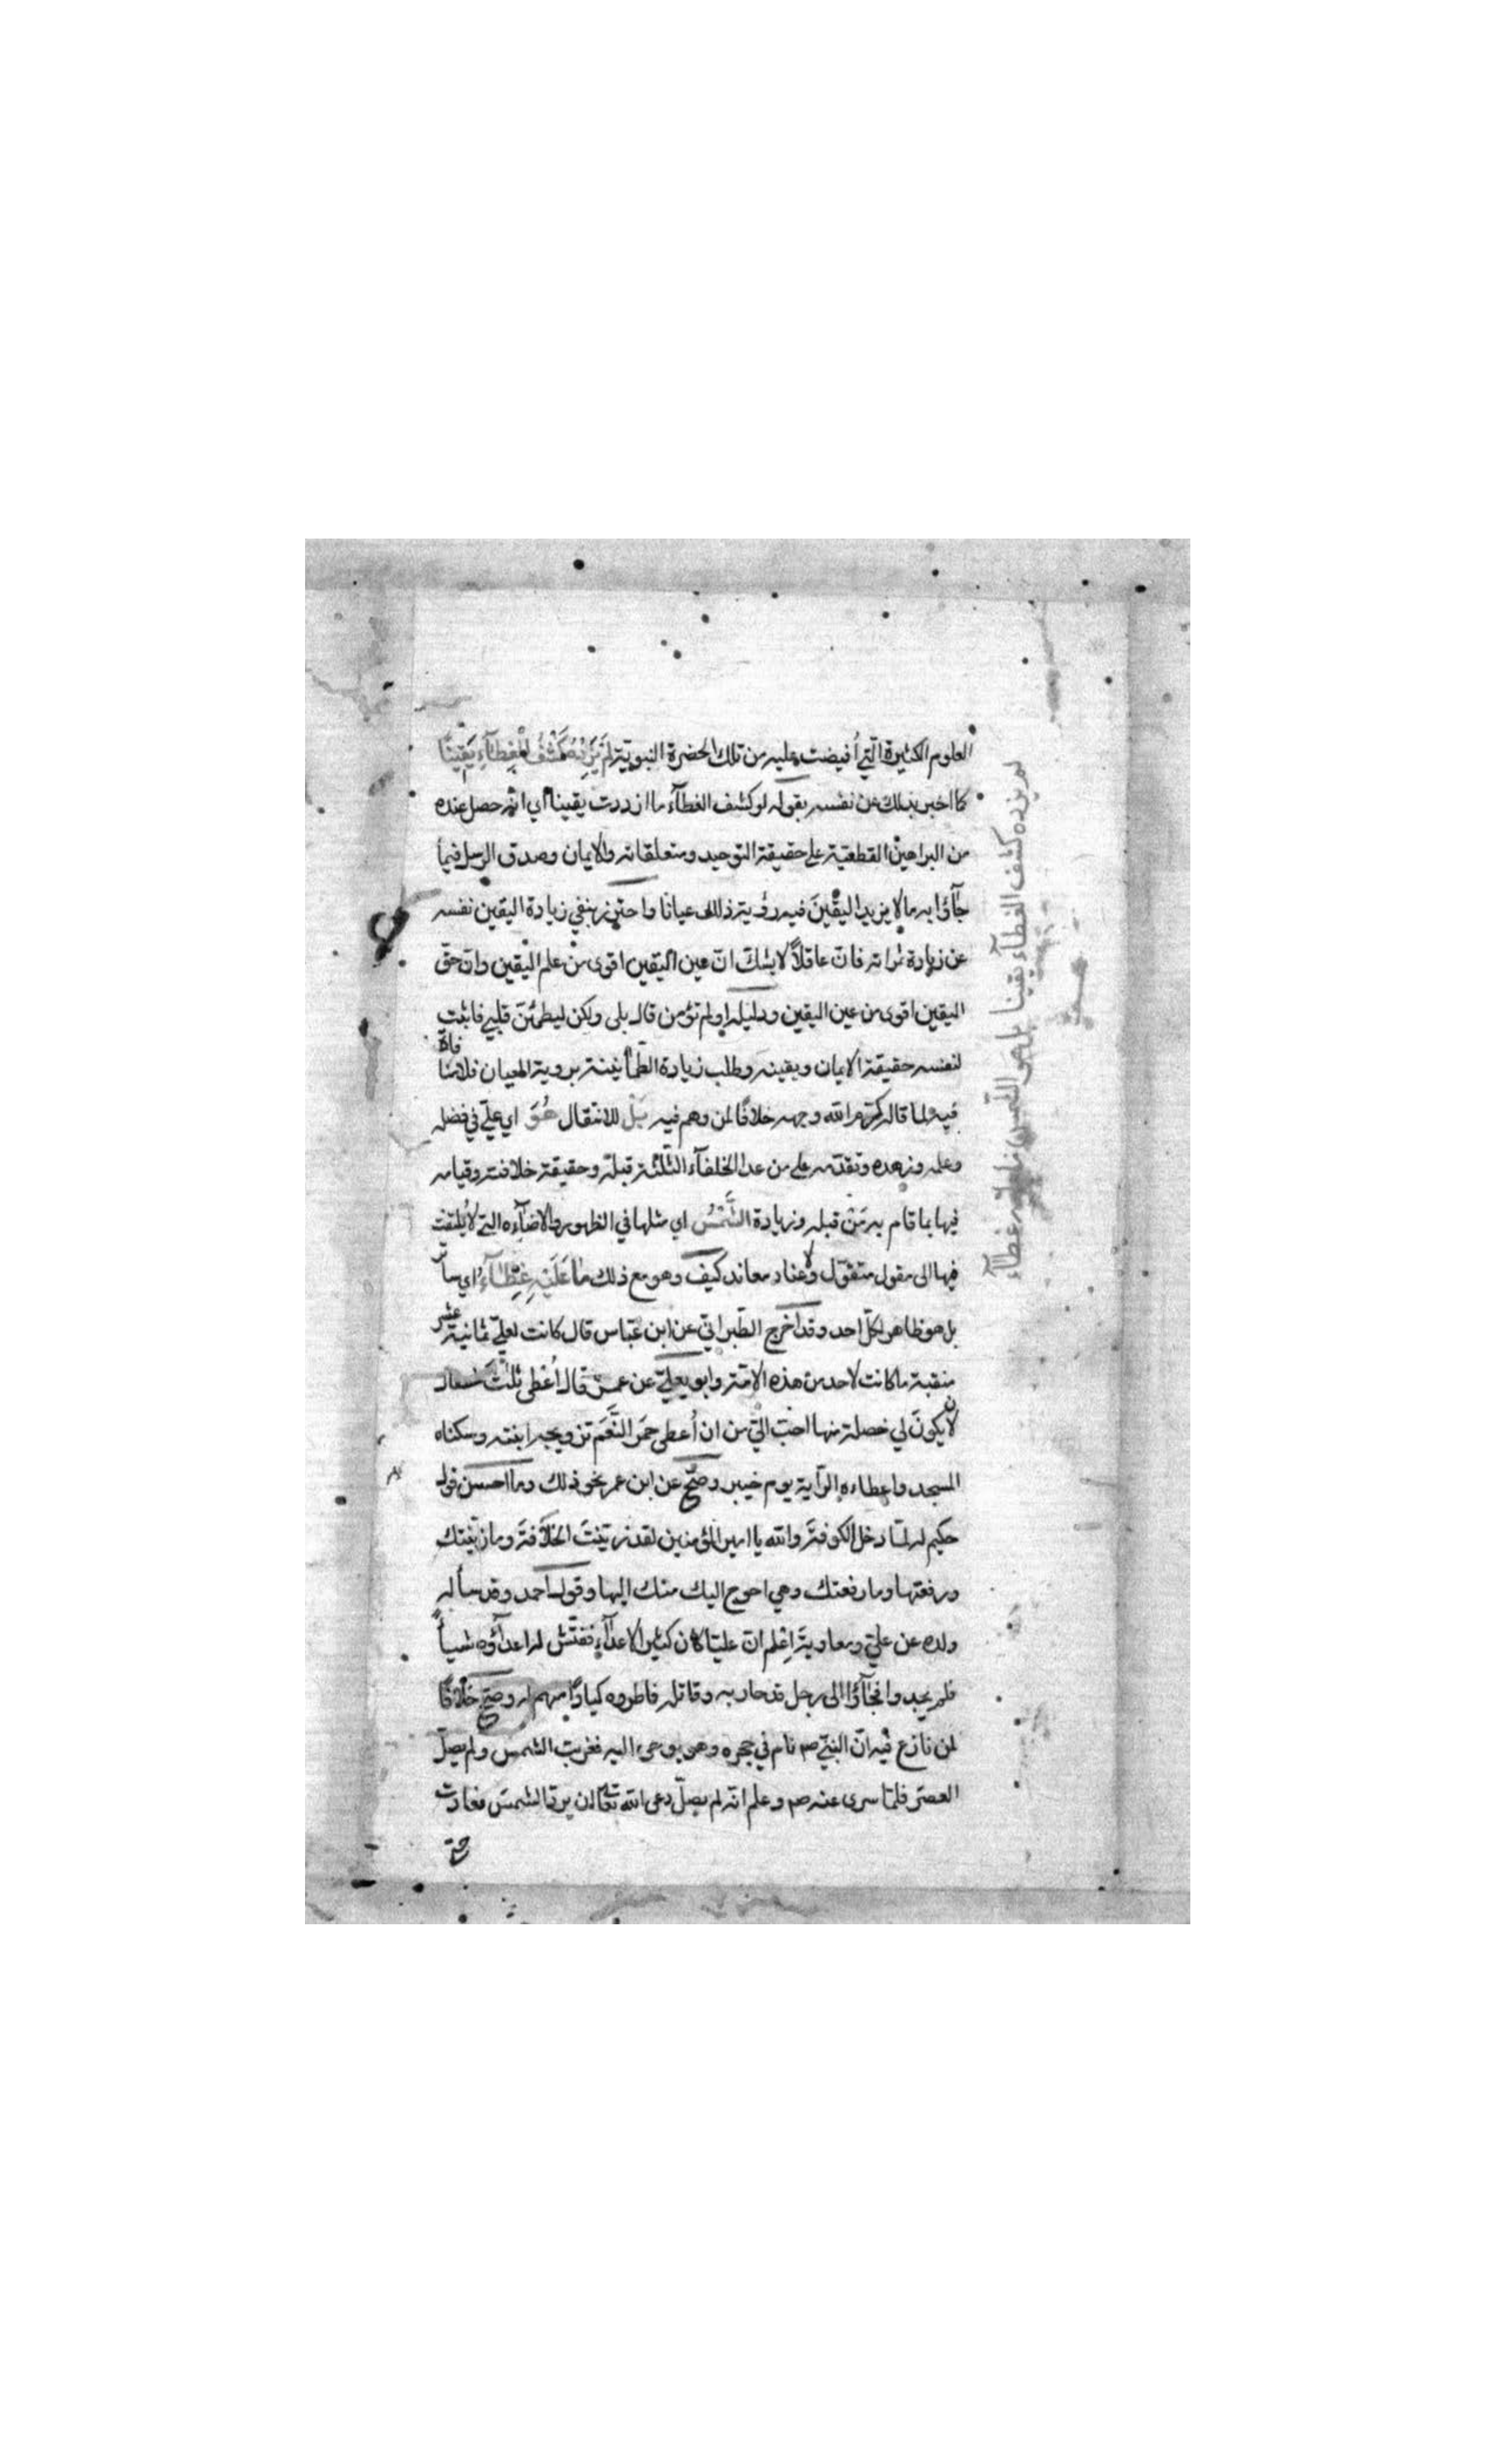 العلوم الكثيرة التي أُفيضت عليه من تلك الحضرة النبويّة لَمْ يَزِدْهُ كَشْفُ الْغِطَآءِ يَقِينًا
كما اخبر بذلك عن نفسه بقوله لو كشف الغطآء ما ازددت يقينا اي انه حصل عنده
من البراهين القطعيّة على حقيقة التوحيد ومتعلقاته والايمان وصدق الرسل فيما
جآؤا به ما لا يزيد اليقين فيه رؤية ذلك عيانا واحترز بنفي زيادة اليقين نفسه
عن زيادة ثمراته فان عاقلاً لا يشك انّ عين اليقين اقوى من علم اليقين وان حق
اليقين اقوى من عين اليقين ودليله اولم تؤمن قال بلى ولكن ليطمئنّ قلبي فاثبت
لنفسه حقيقة الايمان ويقينه وطلب زيادة الطمأنينة برؤية العيان فلا منافاة
فيه لما قاله كرّم الله وجهه خلافًا لمن وهم فيه بَلْ للانتقال هُوَ اي عليّ في فضله
وعلمه وزهده وتقدّمه على من عدا الخلفآء الثلثة قبله وحقيقة خلافته وقيامه
فيها بما قام به مَنْ قبله وزيادة الشَّمْسُ اي مثلها في الظهور والاضآءه التي لا يُلتفت
فيها الى مقول متقوّل ولا عناد معاند كيف وهو مع ذلك مَا عَلَيْهِ غِطَآءُ اي ساتر
بل هو ظاهر لكلّ احد وقد اخرج الطّبرانيّ عن ابن عبّاس قال كانت لعليّ ثمانية عشر
منقبة ما كانت لاحد من هذه الامّة وابو يعلى عن عمر قال أُعْطى ثلثَ خصال
لان يكونَ لي خصلة منها احبّ اليّ من ان أُعطى حمر النَّعَم تزويجه ابنته وسكناه
المسجد واعطاءه الرّاية يوم خيبر وصحّ عن ابن عمر نحو ذلك وما احسن قول
حكيم له لمّا دخل الكوفة والله يا امير المؤمنين لقد زيّنتَ الخلافة وما زيّنتك
ورفعتها وما رفعتك وهي احوج اليك منك اليها وقول احمد وقد سأله
ولده عن عليّ ومعاوية اِعْلم انّ عليّا كان كثير الاعدآء ففتّش له اعدآؤه شيئاً
فلم يجدوا فجآؤا الى رجل قد حاربه وقاتله فاطروه كيادًا منهم له وصحّ خلافًا
لمن نازع فيه انّ النبيّ صم نام في حجره وهو يوحى اليه فغربت الشمس ولم يصلّ
العصر فلمّا سرى عنه صم وعلم انّه لم يصلّ دعى الله تعالى ان يردّ الشمس فعادت
حتى
لم يزده كشف الغطآء يقينا بل هو الشمس ما عليه غطآء